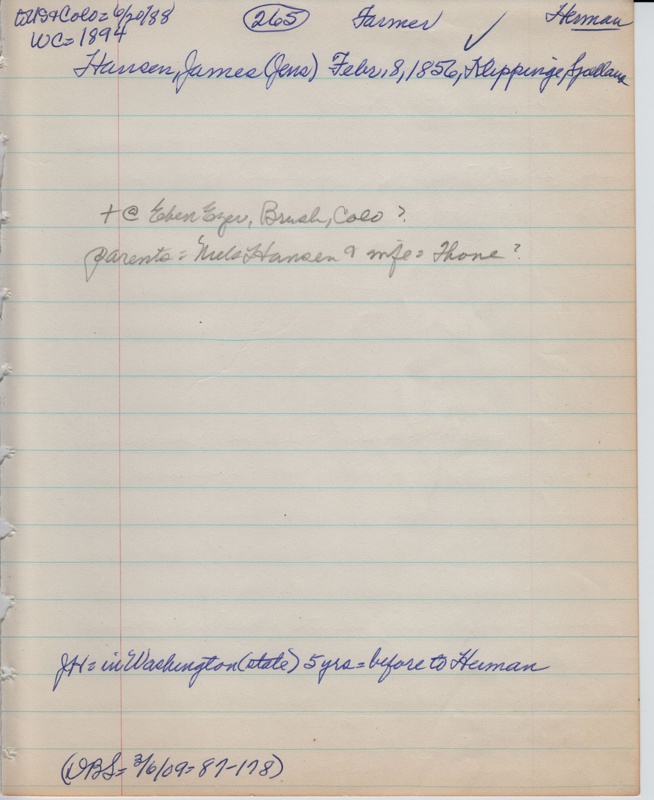 to WB & Colo = 6/20/88 (265) Farmer Herman
WC = 1894 ✓
Hansen, James (Jens) Febr. 8, 1856, Klippinge, Sjælland
+ @ Eben Ezer, Brush, Colo ?
parents = Niels Hansen & wife = Thone ?
JH = in Washington (state) 5 yrs = before to Herman
(DBS = 3/6/09 = 87-178)